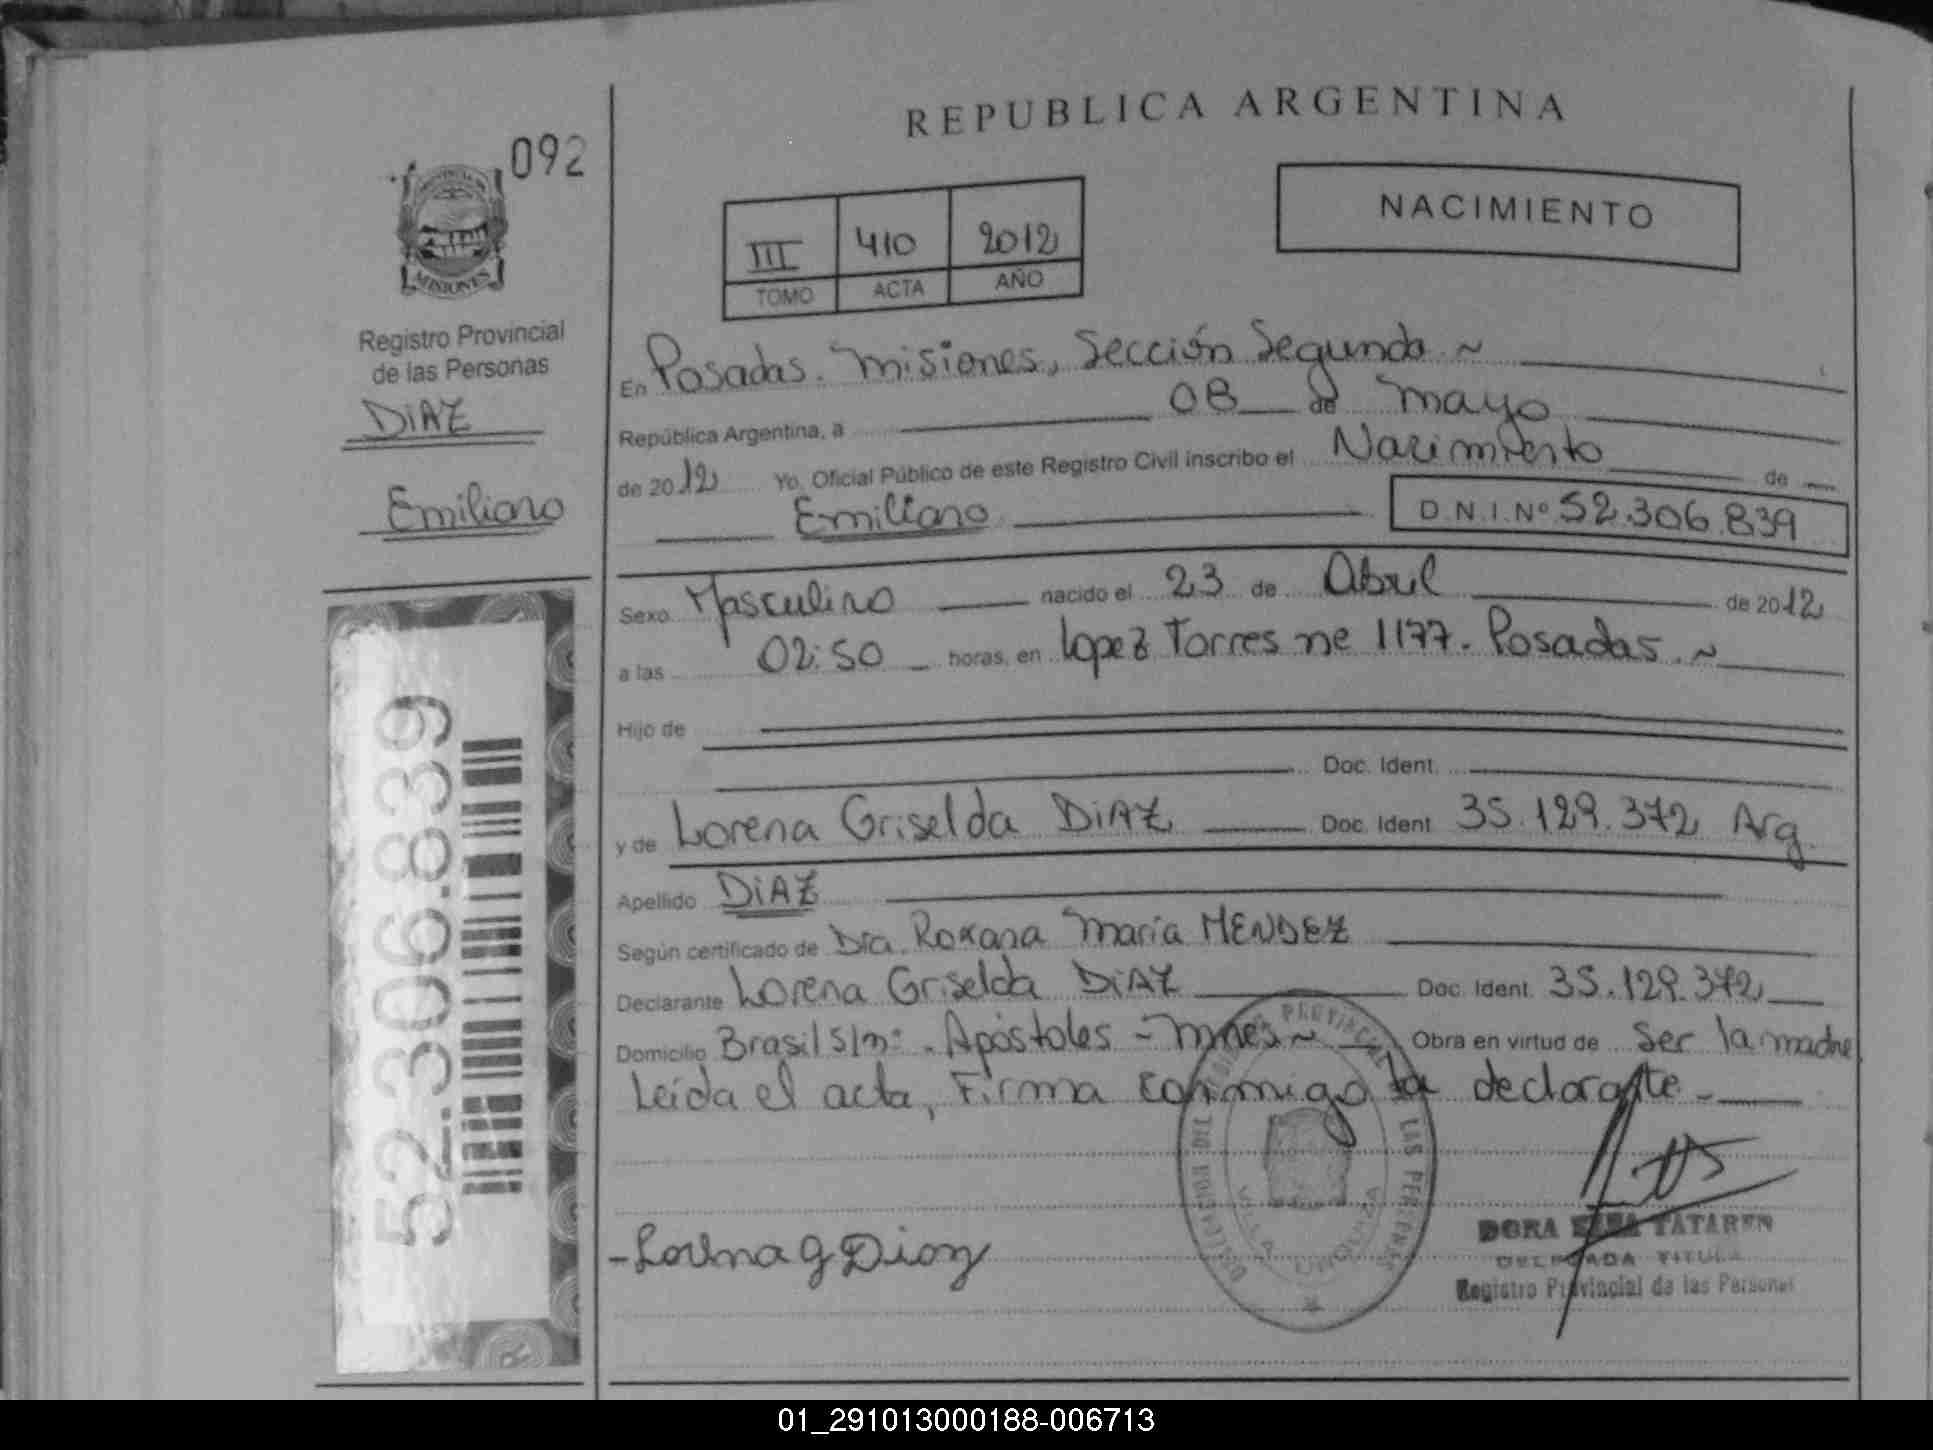 092
PROVINCIA DE
MISIONES
Registro Provincial
de las Personas
DIAZ
Emiliano
52.306.839
REPUBLICA ARGENTINA
NACIMIENTO
III 410 2012
TOMO ACTA AÑO
En Posadas. Misiones, Sección Segunda ~
República Argentina, a 08 de Mayo
de 2012 Yo, Oficial Público de este Registro Civil inscribo el Nacimiento de
Emiliano D.N.I. Nº 52.306.839
Sexo Masculino nacido el 23 de Abril de 2012
a las 02:50 horas, en Lopez Torres ne 1177. Posadas. ~
Hijo de
Doc. Ident.
y de Lorena Griselda DIAZ Doc. Ident 35.129.372 Arg.
Apellido DIAZ
Según certificado de Dra. Roxana Maria MENDEZ
Declarante Lorena Griselda DIAZ Doc. Ident. 35.129.372
Domicilio Brasil s/nº. Apóstoles - Mnes ~ Obra en virtud de Ser la madre
Leída el acta, Firma conmigo la declarante -
PROVINCIAL LAS PERSONAS
VILLA URQUIZA
- Lorena G Diaz
DORA TATAREN
DELEGADA TITULA
Registro Provincial de las Personas
01_291013000188-006713